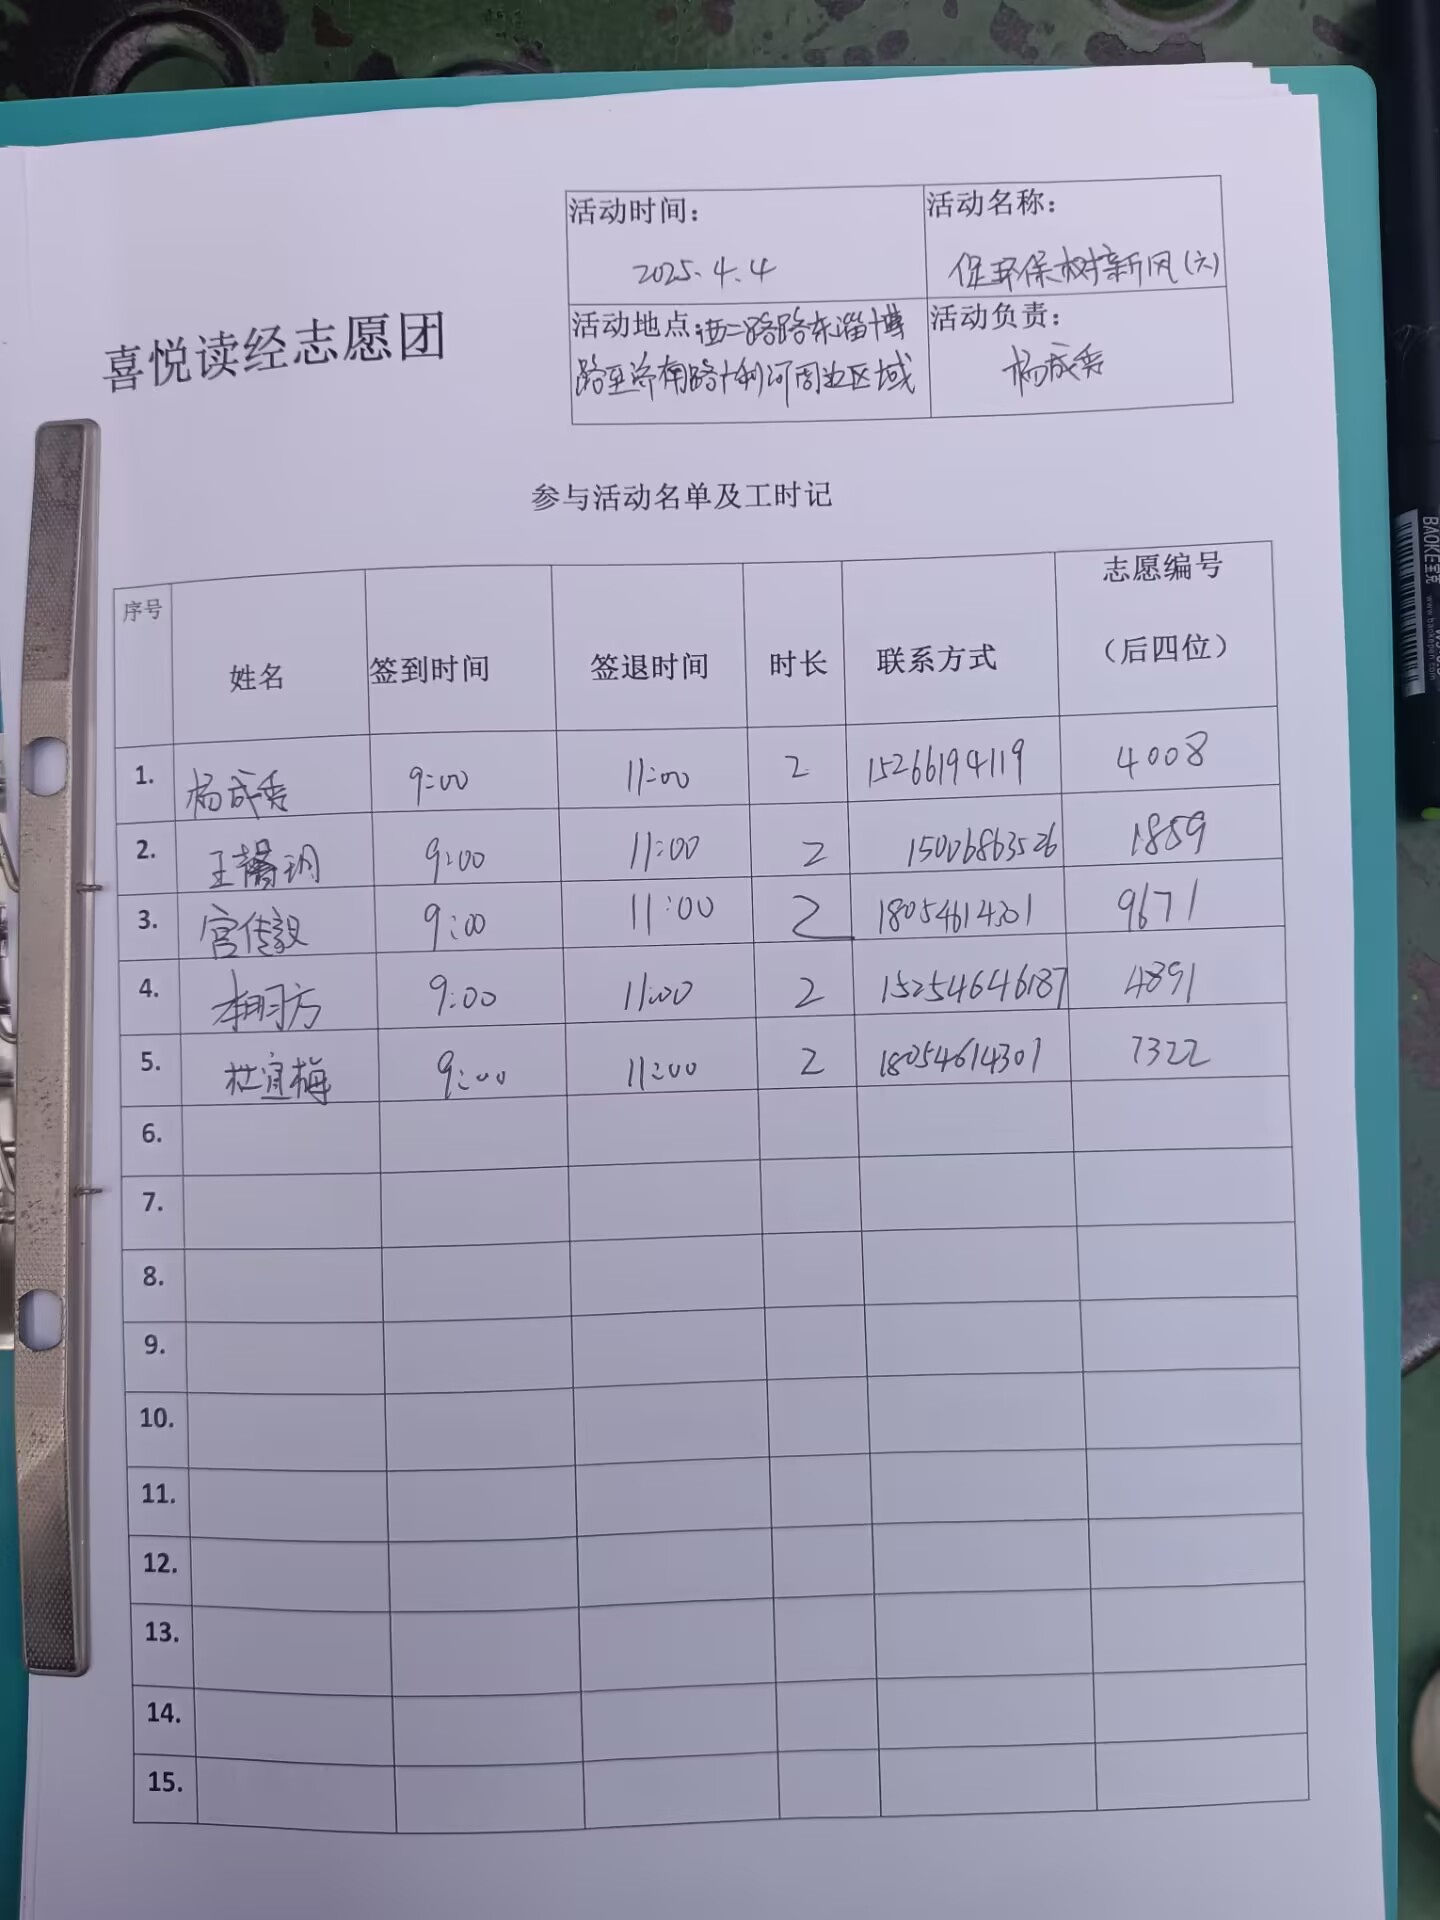 活动时间：
2025.4.4
活动名称：
促环保树新风(六)
喜悦读经志愿团
活动地点：西二路路东淄博
路至济南路广利河周边区域
活动负责：
杨成秀
参与活动名单及工时记
序号 姓名 签到时间 签退时间 时长 联系方式 志愿编号
（后四位）
1. 杨成秀 9:00 11:00 2 15266194119 4008
2. 王馨玥 9:00 11:00 2 15006863526 1859
3. 宫传毅 9:00 11:00 2 18054614301 9671
4. 9:00 11:00 2 15254646187 4891
5. 杜宜梅 9:00 11:00 2 18054614301 7322
6.
7.
8.
9.
10.
11.
12.
13.
14.
15.
BAOKE宝克